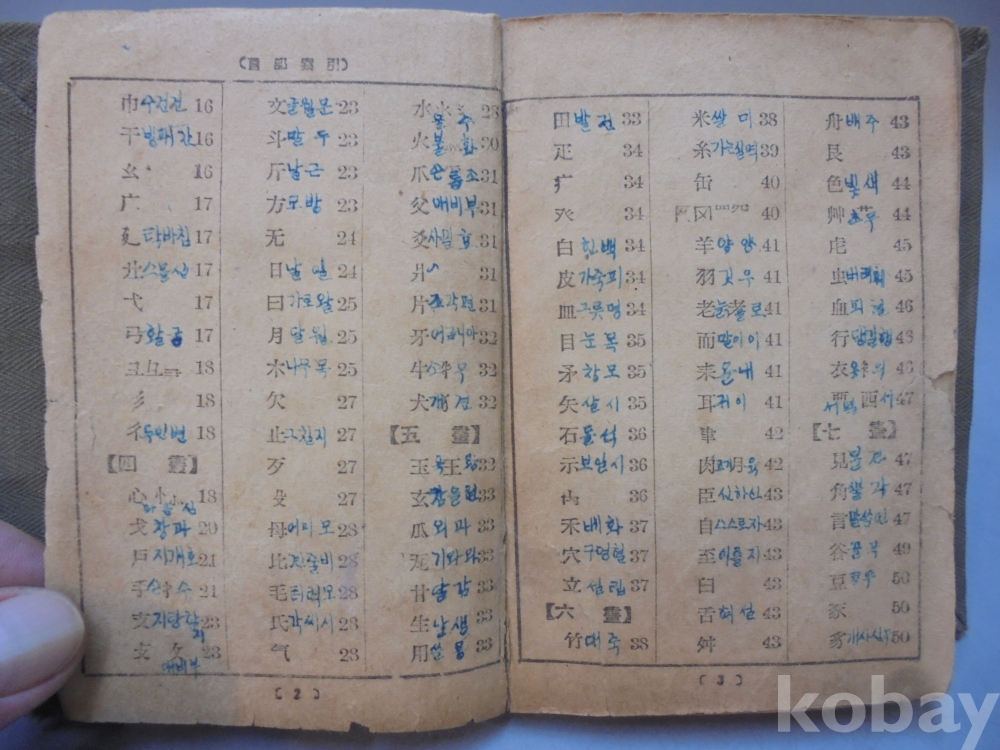 【引索部首】
巾 수건건 16
干 방패간 16
幺 16
广 17
廴 17
廾 스물십 17
弋 17
弓 활궁 17
18
彡 18
彳 두인변 18
【四畫】
心 忄 㣺 18
마음심
戈 창과 20
戶 지개호 21
手 扌 손수 21
支 지탕할지 23
攴 攵 23
文 글월문 23
斗 말두 23
斤 날근 23
方 모방 23
无 24
日 날일 24
曰 가로왈 25
月 달월 25
木 나무목 25
欠 27
止 그칠지 27
歹 27
殳 27
母 어미모 28
比 견줄비 28
毛 터럭모 28
氏 각씨시 28
气 28
水 氵 28
물수
火 불화 30
爪 손톱조 31
父 애비부 31
爻 31
爿 31
片 조각편 31
牙 어금니아 32
牛 우 32
犬 개견 32
【五畫】
玉 王 32
玄 감을현 32
瓜 외과 33
瓦 기와와 33
甘 달감 33
生 날생 33
用 쓸용 33
(2)
田 발전 33
疋 34
疒 34
癶 34
白 흰백 34
皮 가죽피 34
皿 그릇명 34
目 눈목 35
矛 창모 35
矢 살시 35
石 돌석 36
示 보일시 36
禸 36
禾 베화 37
穴 구멍혈 37
立 설립 37
【六畫】
竹 대죽 38
米 쌀미 38
糸 가는실멱 39
缶 40
网 罒 40
羊 양양 41
羽 깃우 41
老 耂 늙을로 41
而 말이이 41
耒 41
耳 귀이 41
聿 42
肉 月 고기육 42
臣 신하신 43
自 스스로자 43
至 이를지 43
臼 43
舌 혀설 43
舛 43
舟 배주 43
艮 43
色 빛색 44
艸 44
虍 45
虫 45
血 피혈 46
行 48
衣 46
襾 西 47
【七畫】
見 볼견 47
角 뿔각 47
言 말씀언 47
谷 골곡 49
豆 50
豕 50
豸 50
(3)
kobay